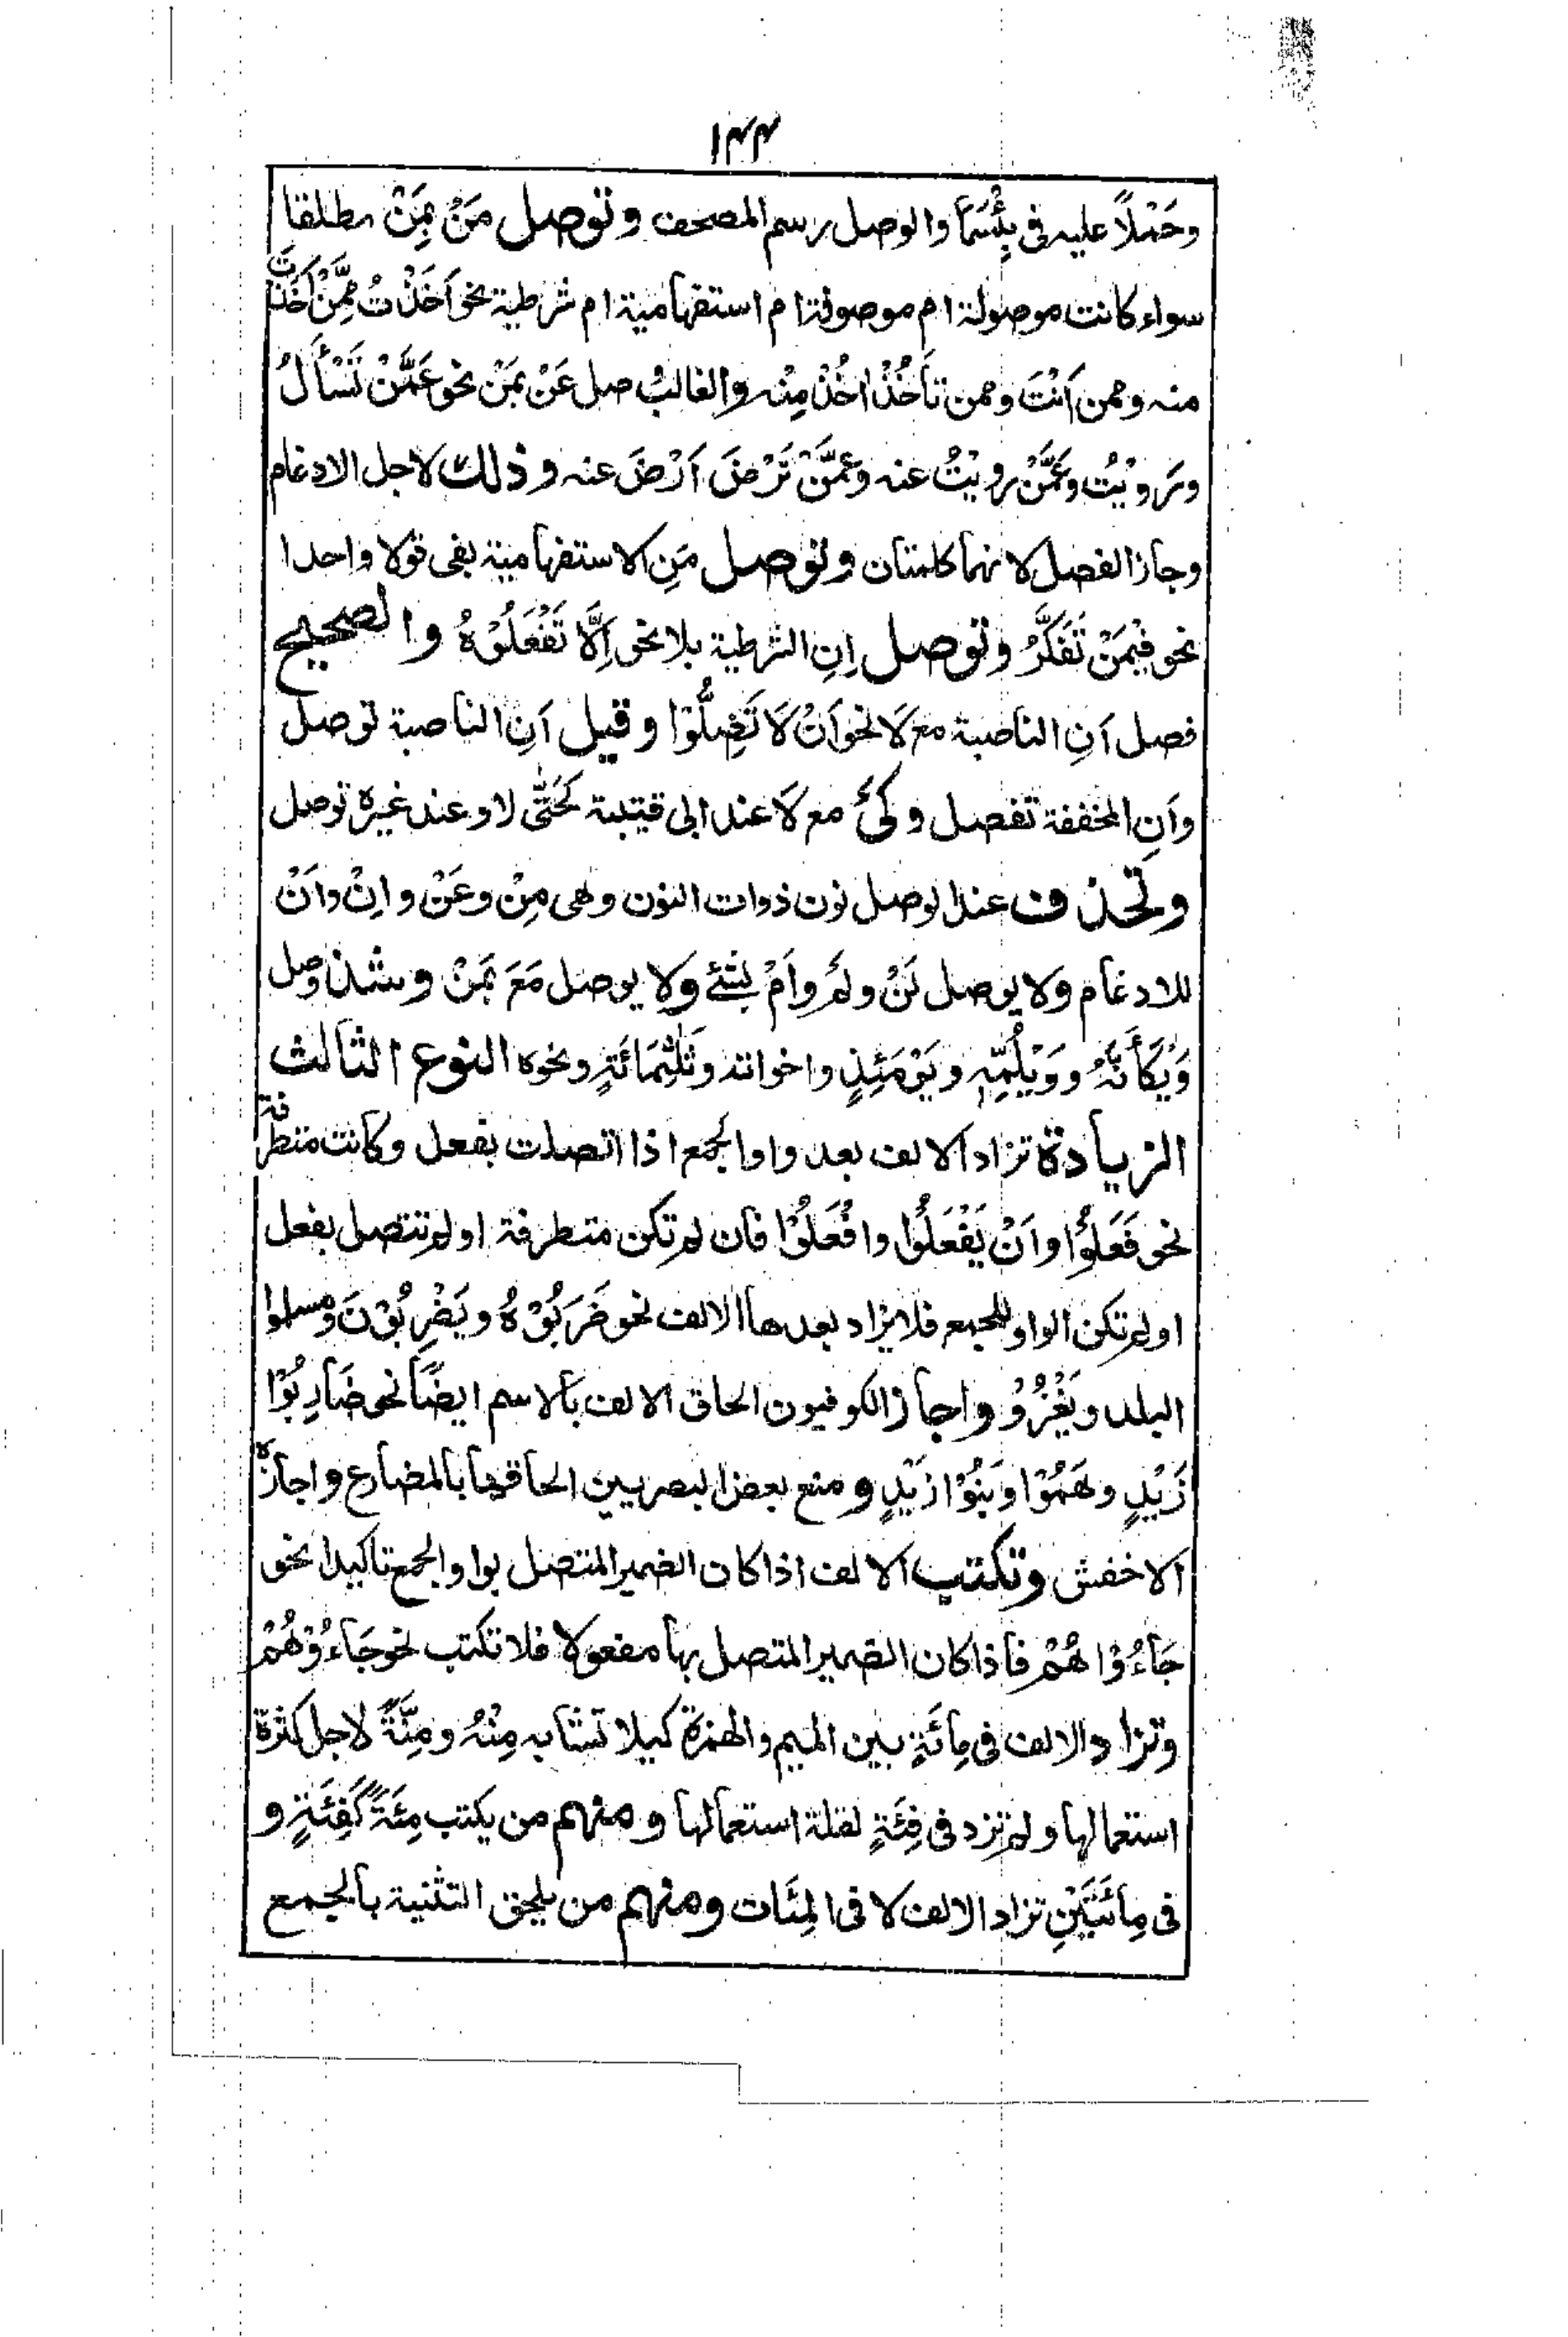 ١٤٤
وحَمْلاً عليه فى بِئْسَمَا والوصل رسم المصحف وتوصل مَنْ بِمِنْ مطلقا
سواء كانت موصولة ام موصوفة ام استفهامية ام شرطية نحو اَخَذْتُ مِمَّنْ اَخَذْتَ
منه وممن اَنْتَ وممن تَأخُذْ اٰخُذْ مِنْه والغالبُ وصل عَنْ بمَنْ نحو عَمَّنْ تَسْأَلُ
ورَوَيْتُ وعَمَّنْ رويْتُ عنه وعَمَّنْ تَرْضَ اَرْضَ عنه وذلك لاجل الادغام
وجاز الفصل لانهما كلمتان وتوصل مَنِ الاستفهامية بفى قولا واحدا
نحو فيْمَنْ تَفَكَّرُ وتوصل اِنِ الشرطية بلا نحو اِلَّا تَفْعَلُوْهُ والصحيح
فصل اَنِ الناصبة مع لَا نحو اَنْ لَا تَضِلُّوْا وقيل اَنِ الناصبة توصل
واَنِ المخففة تفصل وكَىْ مع لَا عند ابى قتيبة كَحَتّٰى لا وعند غيره توصل
وتحذف عند الوصل نون ذوات النون وهى مِنْ وعَنْ واِنْ واَنْ
للادغام ولا يوصل لَنْ ولَمْ واَمْ بشئ ولا يوصل مَعَ بمَنْ وشذ وصل
وَيْكَأَنَّهُ ووَيْلُمِّهِ ويَوْمَئِذٍ واخواته وثَلٰثِمَائَةٍ ونحوه النوع الثالث
الزيادة تزاد الالف بعد واو الجمع اذا اتصلت بفعل وكانت متطرفة
نحو فَعَلُوْا واَنْ يَفْعَلُوْا وافْعَلُوْا فان لم تكن متطرفة او لم تتصل بفعل
او لم تكن الواو للجمع فلا يزاد بعدها الالف نحو ضَرَبُوْهُ ويَضْرِبُوْنَ ومسلموا
البلد ويَغْزُوْ واجاز الكوفيون الحاق الالف بالاسم ايضًا نحو ضَارِبُوْا
زَيْدٍ وهَمُوْا وبَنُوْا زَيْدٍ ومنع بعض البصريين الحاقها بالمضارع واجازه
الاخفش وتكتب الالف اذا كان الضمير المتصل بواو الجمع تاكيدا نحو
جَاءُوْا هُمْ فاذا كان الضمير المتصل بها مفعولا فلا تكتب نحو جَاءُوْهُمْ
وتزاد الالف فى مِائَةٍ بين الميم والهمزة كيلا تشابه مِنْهُ ومِنَّةً لاجل كثرة
استعمالها ولم تزد فى فِئَةٍ لقلة استعمالها ومنهم من يكتب مِئَةً كَفِئَةٍ و
فى مِائَتَيْنِ تزاد الالف لا فى المِئَات ومنهم من يلحق التثنية بالجمع